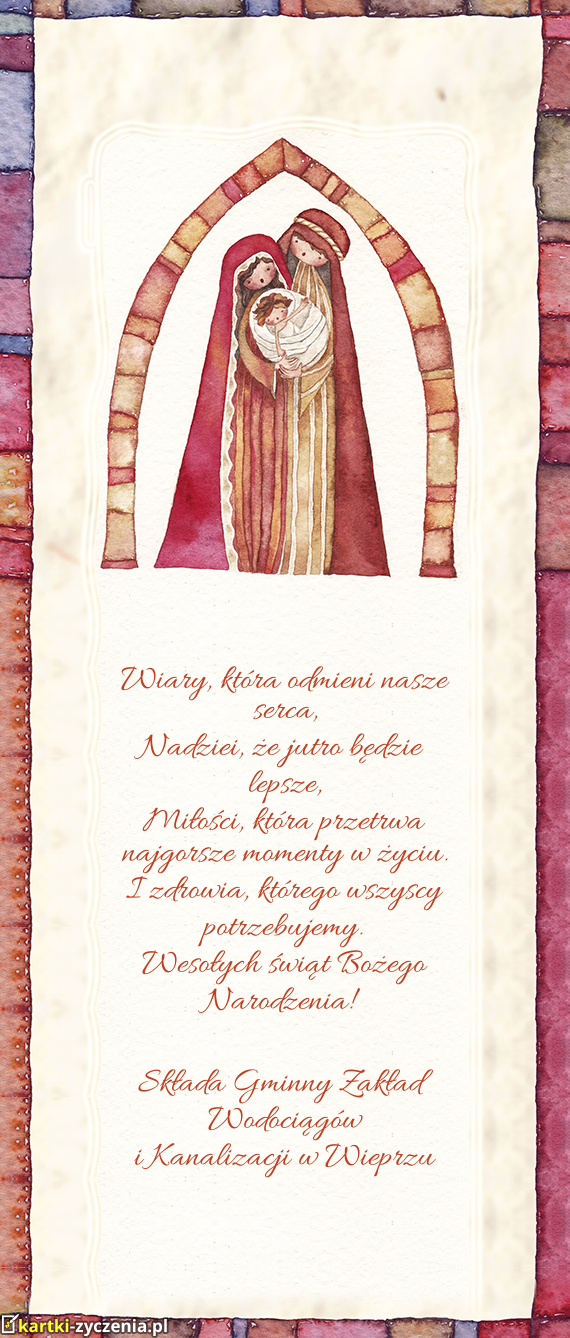 Wiary, która odmieni nasze
serca,
Nadziei, że jutro będzie
lepsze,
Miłości, która przetrwa
najgorsze momenty w życiu.
I zdrowia, którego wszyscy
potrzebujemy.
Wesołych świąt Bożego
Narodzenia!
Składa Gminny Zakład
Wodociągów
i Kanalizacji w Wieprzu
kartki-zyczenia.pl